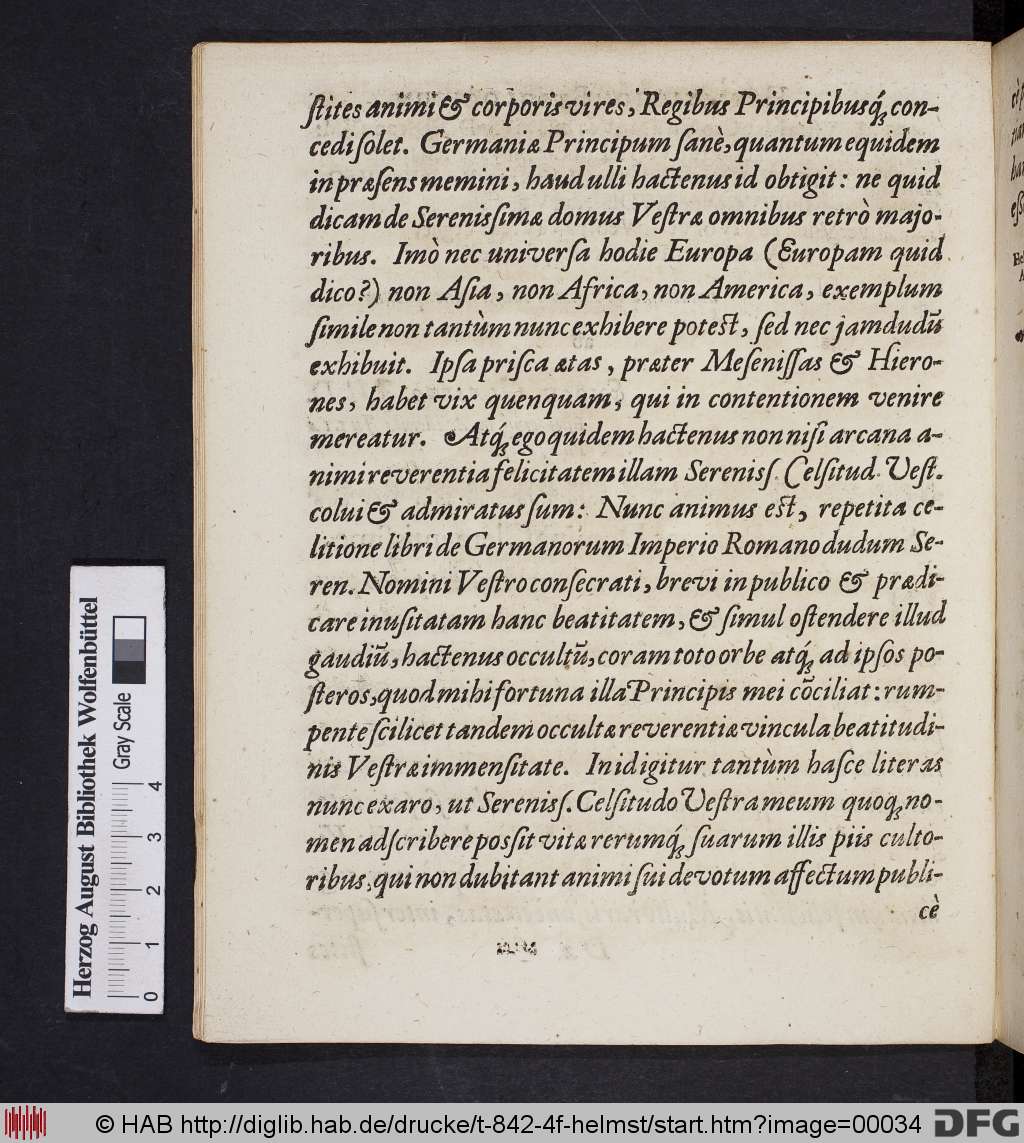 ſtites animi & corporis vires, Regibus Principibusq́ꝫ con-
cedi ſolet. Germaniæ Principum ſanè, quantum equidem
in præſens memini, haud ulli hactenus id obtigit: ne quid
dicam de Serenisſimæ domus Veſtræ omnibus retrò majo-
ribus. Imò nec univerſa hodie Europa (Europam quid
dico?) non Aſia, non Africa, non America, exemplum
ſimile non tantùm nunc exhibere poteſt, ſed nec jamdudũ
exhibuit. Ipſa priſca ætas, præter Meſeniſſas & Hiero-
nes, habet vix quenquam, qui in contentionem venire
mereatur. Atq́ꝫ ego quidem hactenus non niſi arcana a-
nimi reverentia felicitatem illam Sereniſſ. Celſitud. Veſt.
colui & admiratus ſum: Nunc animus eſt, repetita ce-
litione libri de Germanorum Imperio Romano dudum Se-
ren. Nomini Veſtro conſecrati, brevi in publico & prædi-
care inuſitatam hanc beatitatem, & ſimul oſtendere illud
gaudiũ, hactenus occultũ, coram toto orbe atq́ꝫ ad ipſos po-
ſteros, quod mihi fortuna illa Principis mei cõciliat: rum-
pente ſcilicet tandem occultæ reverentiæ vincula beatitudi-
nis Veſtræ immenſitate. Inidigitur tantùm haſce literas
nunc exaro, ut Sereniſſ. Celſitudo Veſtra meum quoq́ꝫ no-
men adſcribere posſit vitæ rerumq́ꝫ ſuarum illis piis culto-
ribus, qui non dubitant animi ſui devotum affectum publi-
cè
Herzog August Bibliothek Wolfenbüttel
Gray Scale
0 1 2 3 4
© HAB http://diglib.hab.de/drucke/t-842-4f-helmst/start.htm?image=00034
DFG